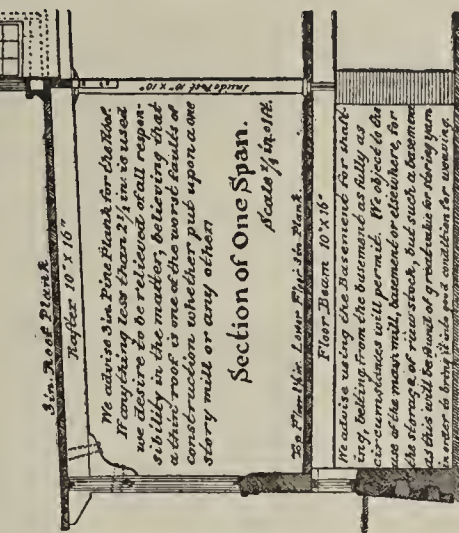 3 in. Roof Plank
Rafter 10" x 16"
We advise 3 in. Pine Plank for the Roof.
If anything less than 2 1/2 in. is used
we desire to be relieved of all respon-
sibility in the matter, believing that
a thin roof is one of the worst faults of
construction whether put upon a one
story mill or any other
Inside Post 10" x 10"
Section of One Span.
Scale 1/8 in. o 1 ft.
Top Floor 1 1/8 in. Lower Floor 3 in Plank.
Floor Beam 10" x 16"
We advise using the Basement for shaft-
ing, belting from the basement as fully as
circumstances will permit. We object to the
use of the main mill, basement or elsewhere, for
the storage of raw stock, but such a basement
as this will be found of great value for storing yarn
in order to bring it into good condition for weaving.